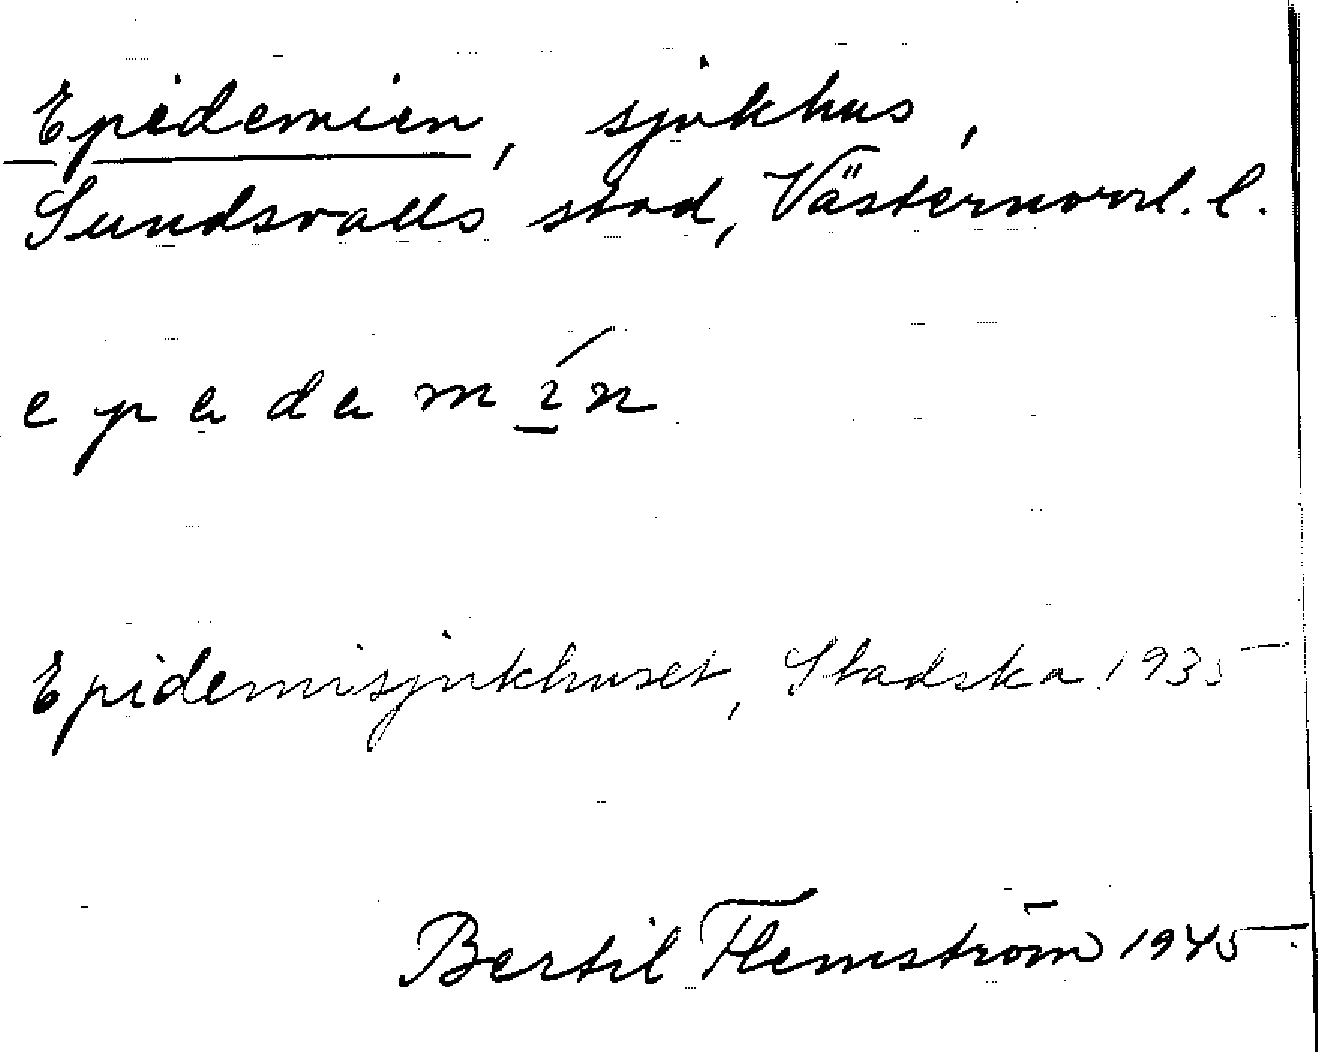 Epidemien, sjukhus,
Sundsvalls stad, Västernorrl. l.
Epidemisjukhuset, Stadska 1935
Bertil Flemström 1945